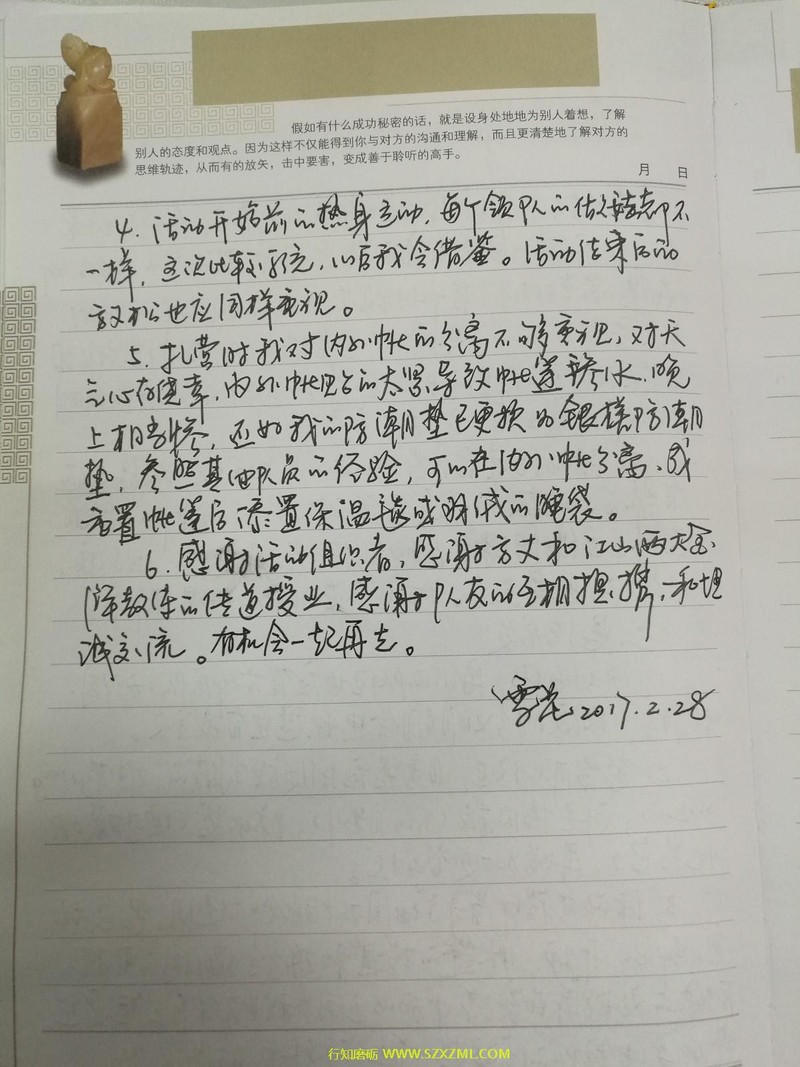 假如有什么成功秘密的话，就是设身处地地为别人着想，了解
别人的态度和观点。因为这样不仅能得到你与对方的沟通和理解，而且更清楚地了解对方的
思维轨迹，从而有的放矢，击中要害，变成善于聆听的高手。
月 日
4. 活动开始前的热身运动，每个领队的做法都不
一样，这次比较系统，以后我会借鉴。活动结束后的
放松也应同样重视。
5. 扎营时我对内外帐的分离不够重视，对天
气心存侥幸，内外帐贴合的太紧导致帐篷渗水，晚
上相当惨，还好我的防潮垫已更换为银模防潮
垫，参照其他队员的经验，可以在内外帐分离、或
布置帐篷后添置保温毯或羽绒的睡袋。
6. 感谢活动组织者，感谢方丈和江山两大金
牌教练的传道授业，感谢队友的互相担携，和坦
诚交流。有机会一起再走。
2017.2.28
行知磨砺 WWW.SZXZML.COM